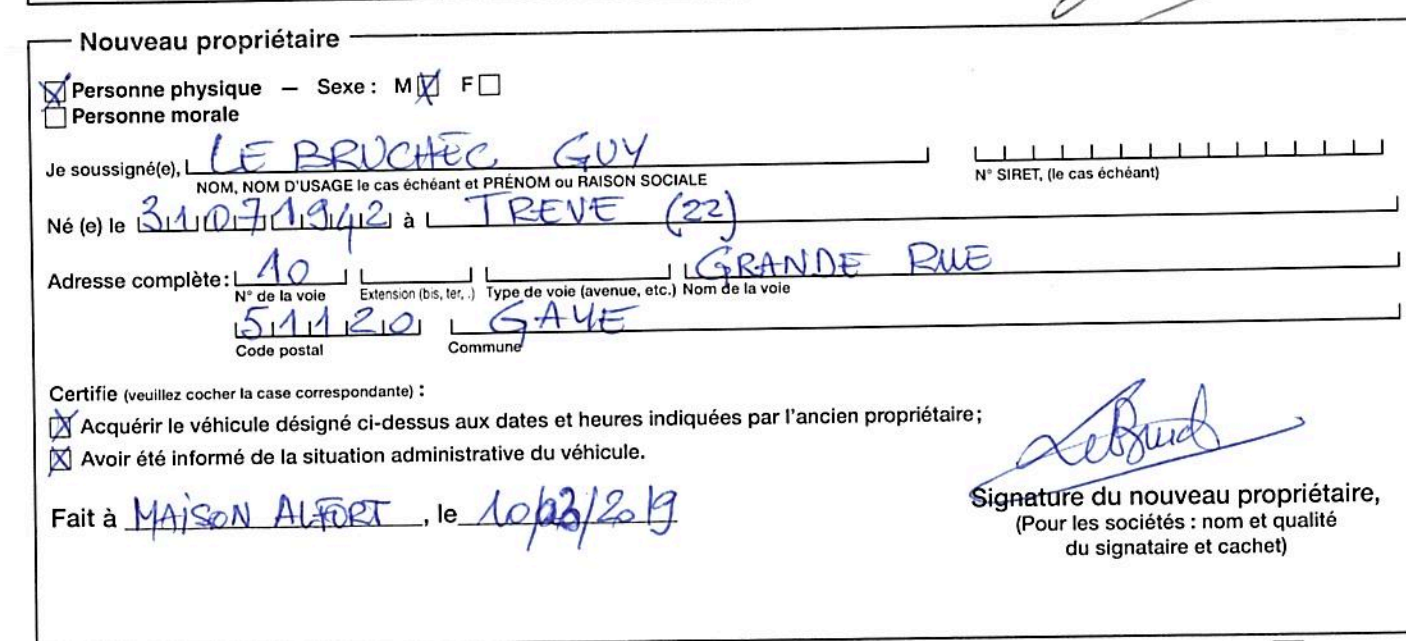 Nouveau propriétaire
Personne physique – Sexe : M F
Personne morale
Je soussigné(e), LE BRUCHEC GUY
NOM, NOM D'USAGE le cas échéant et PRÉNOM ou RAISON SOCIALE N° SIRET, (le cas échéant)
Né (e) le 31071942 à TREVE (22)
Adresse complète: 10 GRANDE RUE
N° de la voie Extension (bis, ter, .) Type de voie (avenue, etc.) Nom de la voie
51120 GAYE
Code postal Commune
Certifie (veuillez cocher la case correspondante) :
Acquérir le véhicule désigné ci-dessus aux dates et heures indiquées par l'ancien propriétaire;
Avoir été informé de la situation administrative du véhicule.
Fait à MAISON ALFORT , le 10/03/2019
Signature du nouveau propriétaire,
(Pour les sociétés : nom et qualité
du signataire et cachet)